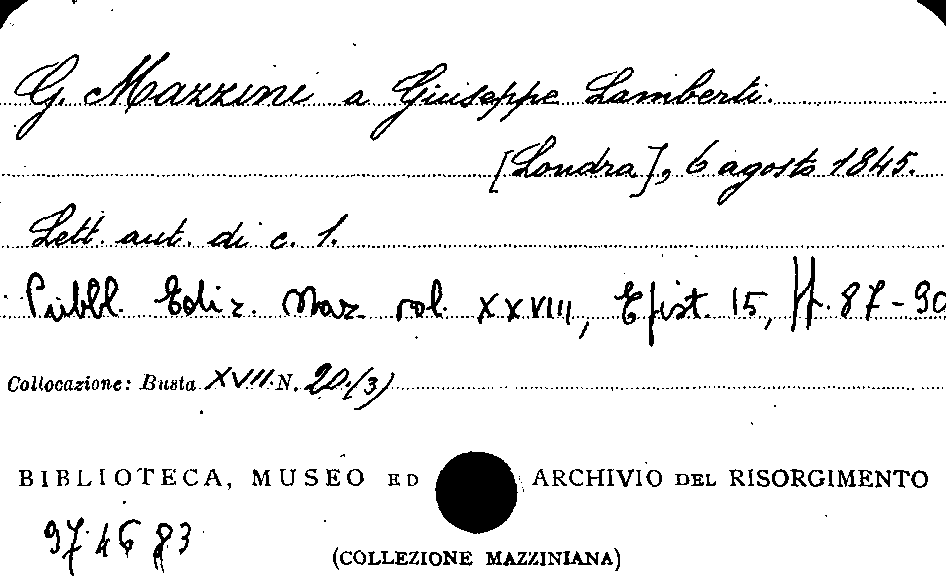 G. Mazzini a Giuseppe Lamberti.
[Londra], 6 agosto 1845.
Lett. aut. di c. 1.
Pubbl. Ediz. Naz. vol. XXVIII, Epist. 15, pp. 87-90
Collocazione: Busta XVII N. 20/(3)
BIBLIOTECA, MUSEO ED ARCHIVIO DEL RISORGIMENTO
974683
(COLLEZIONE MAZZINIANA)